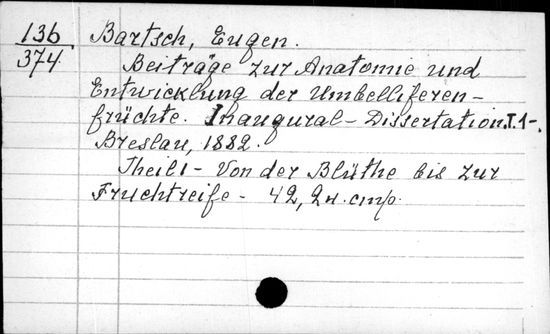 136
374
Bartsch, Eugen.
Beiträge zur Anatomie und
Entwicklung der Umbelliferen-
früchte. Inaugural-Dissertation. T.1-.
Breslau, 1882.
Theil 1 - Von der Blüthe bis zur
Fruchtreife - 42, 2н. стр.